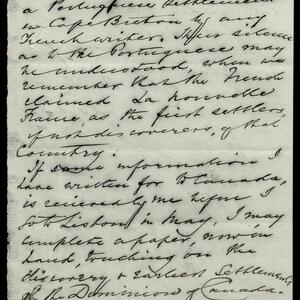 a Portuguese Settlement
in Cape Breton by any
French writer. Their silence
as to the Portuguese may
be understood, when we
remember that the French
claimed La nouvelle
France, as the first settlers,
if not discoverers, of that
Country.
If some information I
have written for to Canada,
is received by me before I
go to Lisbon in May, I may
complete a paper, now in
hand, touching on the
discovery & earliest Settlements
of the Dominion of Canada.